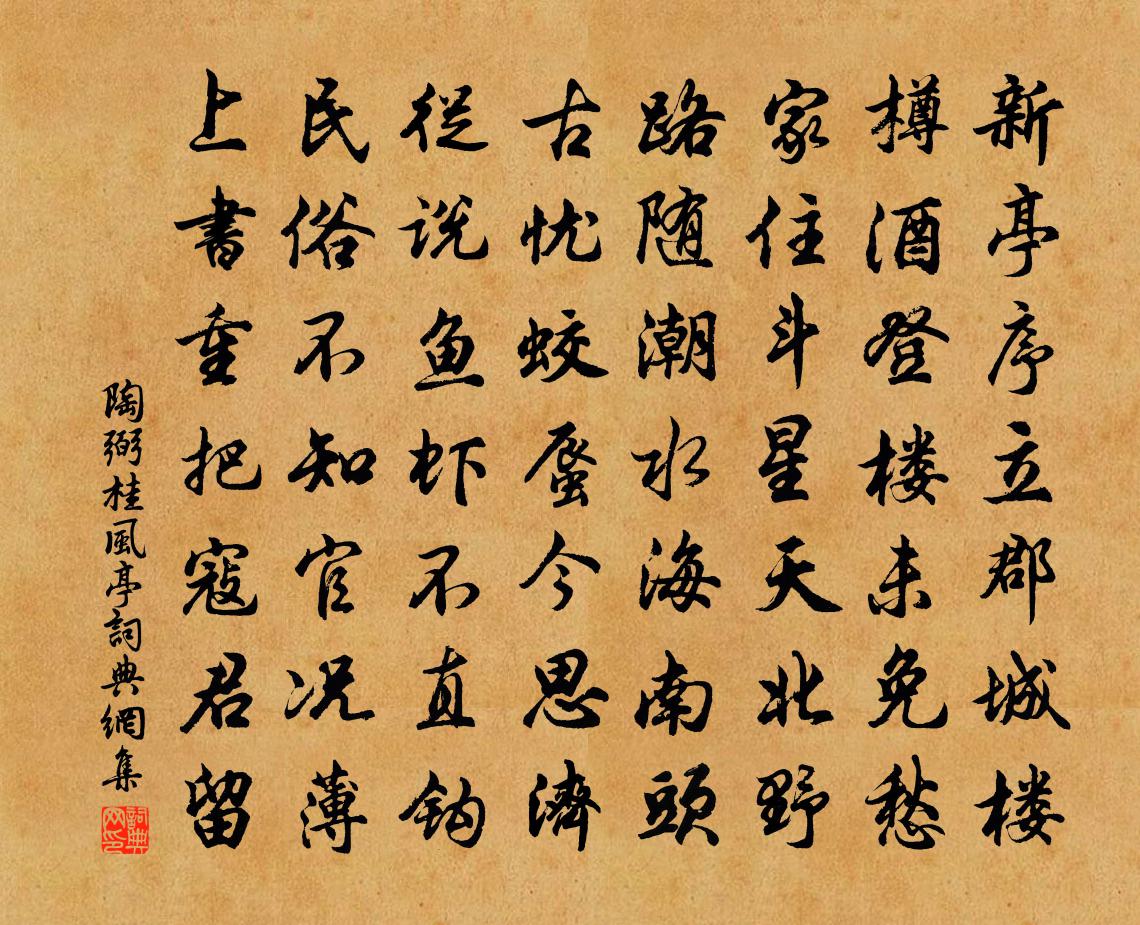 新亭序立郡城楼
樽酒登楼未免愁
家住斗星天北野
路随潮水海南头
古忧蛟蜃今思济
从说鱼虾不直钩
民俗不知官况薄
上书重把寇君留
陶弼桂風亭詞典網集
詞典網印